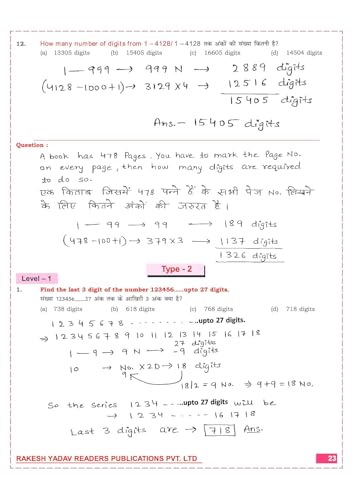 12. How many number of digits from 1 – 4128/ 1 – 4128 तक अंकों की संख्या कितनी है?
(a) 13305 digits (b) 15405 digits (c) 16605 digits (d) 14504 digits
1 — 999 → 999 N → 2889 digits
(4128 - 1000 + 1) → 3129 x 4 → 12516 digits
15405 digits
Ans. - 15405 digits
Question :
A book has 478 Pages. You have to mark the Page No.
on every page, then how many digits are required
to do so.
एक किताब जिसमें 478 पन्ने हैं के सभी पेज No. लिखने
के लिए कितने अंकों की जरुरत है।
1 — 99 → 99 → 189 digits
(478 - 100 + 1) → 379 x 3 → 1137 digits
1326 digits
Type - 2
Level – 1
1. Find the last 3 digit of the number 123456.....upto 27 digits.
संख्या 123456......27 अंक तक के आखिरी 3 अंक क्या है?
(a) 738 digits (b) 618 digits (c) 768 digits (d) 718 digits
1 2 3 4 5 6 7 8 - - - - - - - -..upto 27 digits.
⇒ 1 2 3 4 5 6 7 8 9 10 11 12 13 14 15 16 17 18
27 digits
1 — 9 → 9 N → - 9 digits
10 → No. X 2D → 18 digits
9
18/2 = 9 No. ⇒ 9 + 9 = 18 No.
So the series 1 2 3 4 - - ...upto 27 digits will be
→ 1 2 3 4 - - - - - 16 17 18
Last 3 digits are → 718 Ans.
RAKESH YADAV READERS PUBLICATIONS PVT. LTD 23